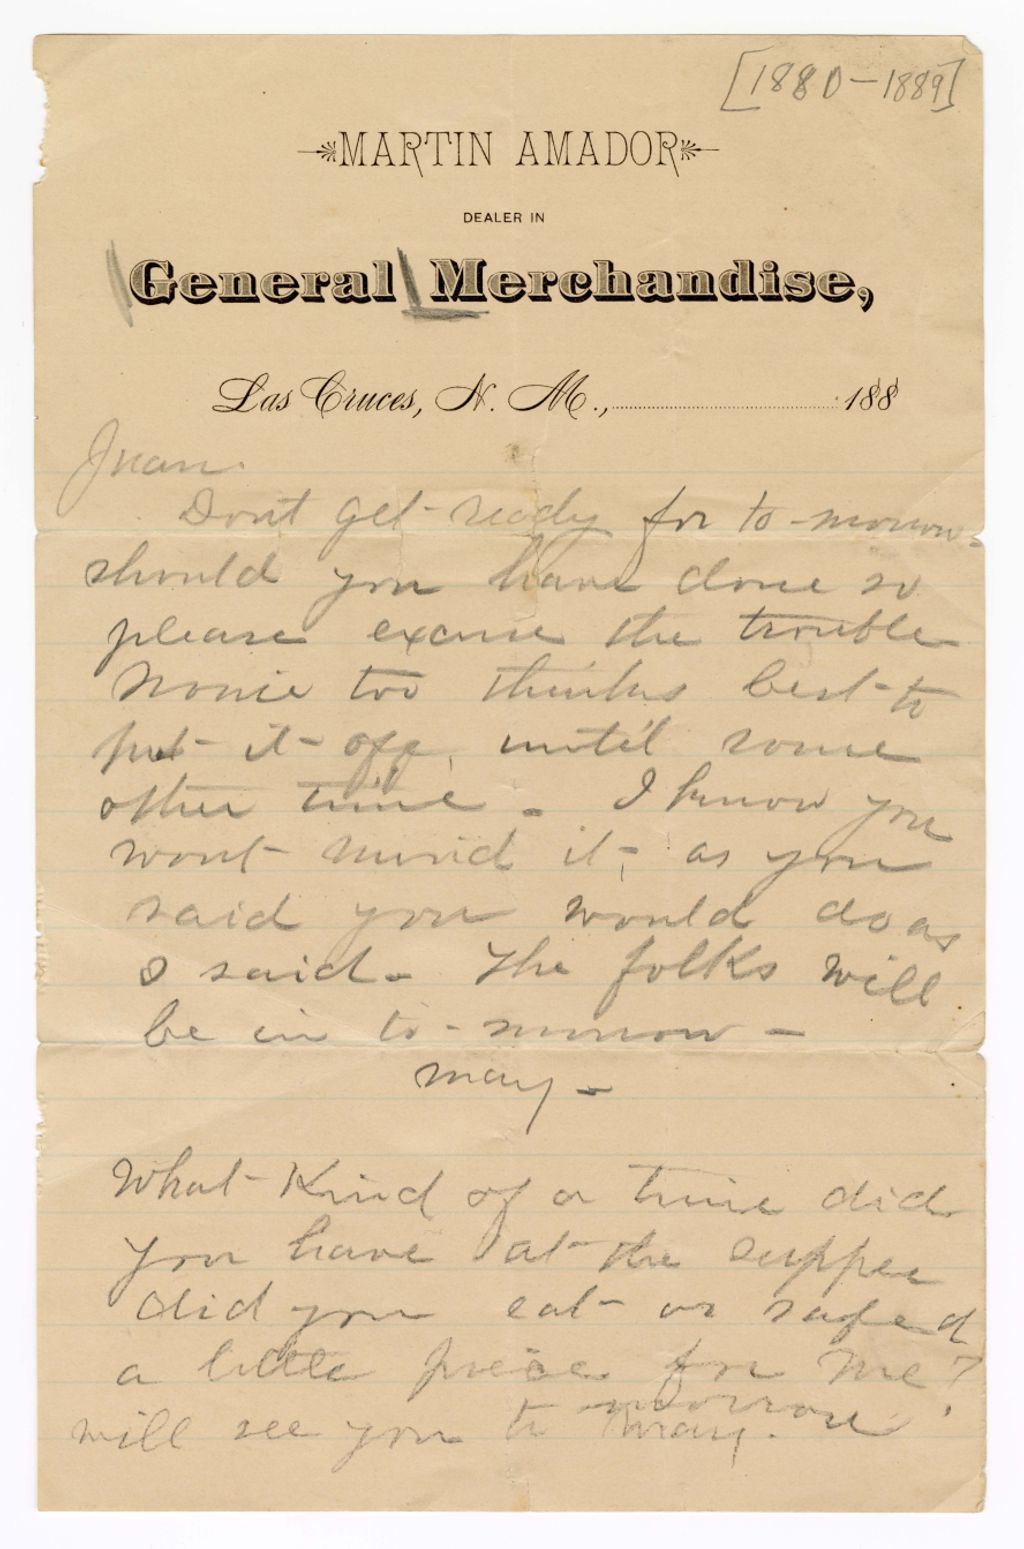 [1880-1889]
MARTIN AMADOR
DEALER IN
General Merchandise,
Las Cruces, N. M., 188
Juan.
Dont get ready for to-morrow-
should you have done so
please excuse the trouble
too thinks best to
put it off, until some
other time - I know you
wont mind it, as you
said you would do as
I said - The folks will
be in to-morrow -
May -
What Kind of a time did
you have at the supper
did you eat or
a little piece for me?
will see you to morrow.
May.